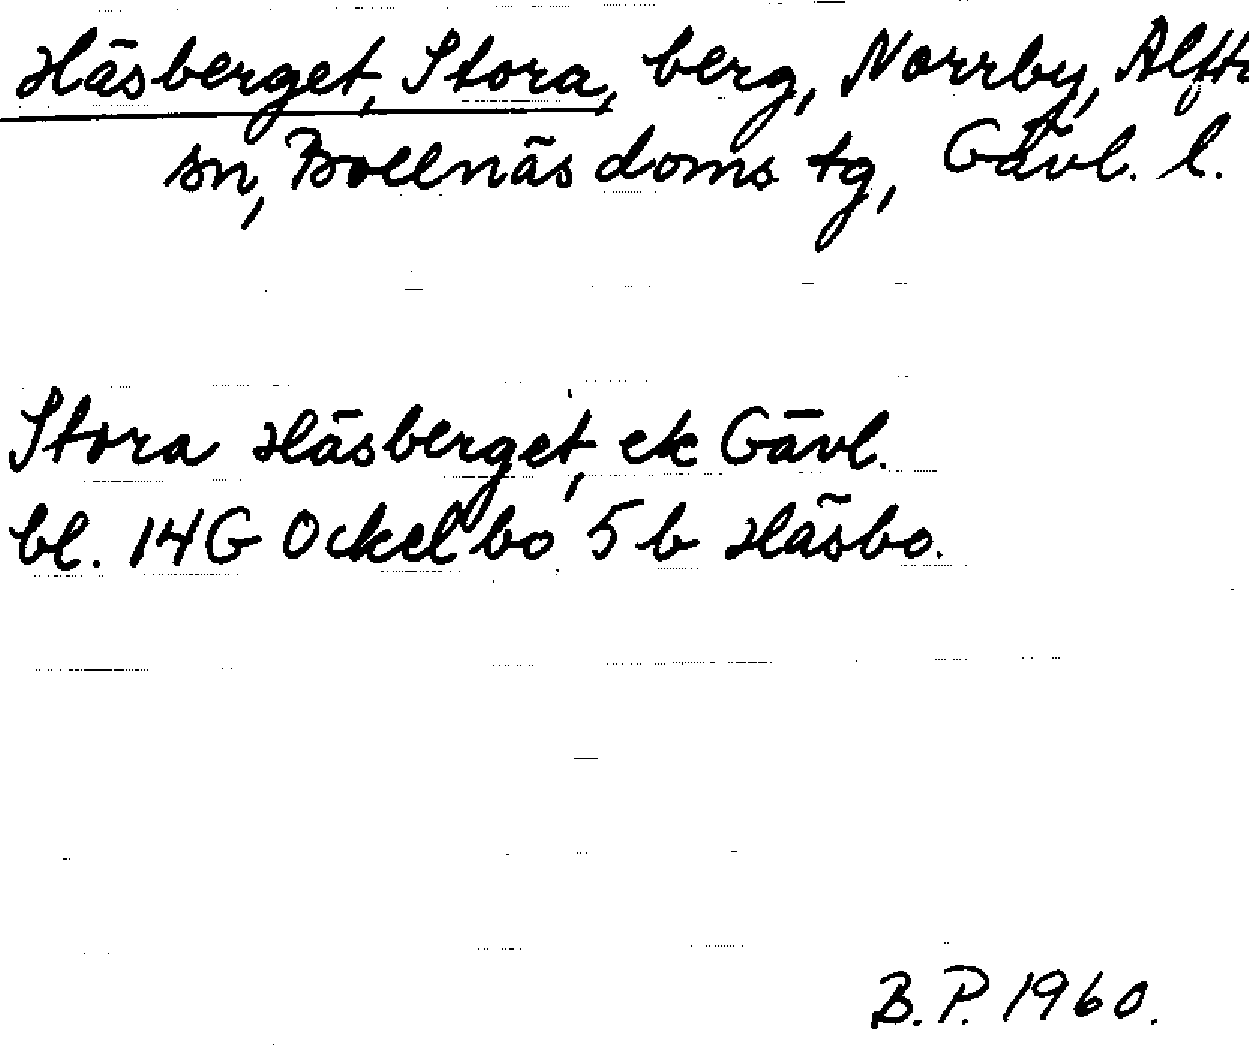 Häsberget, Stora, berg, Norrby, Alfta
sn, Bollnäs doms tg, Gävl. l.
Stora Häsberget, ek Gävl.
bl. 14G Ockelbo 5 b Häsbo.
B. P. 1960.